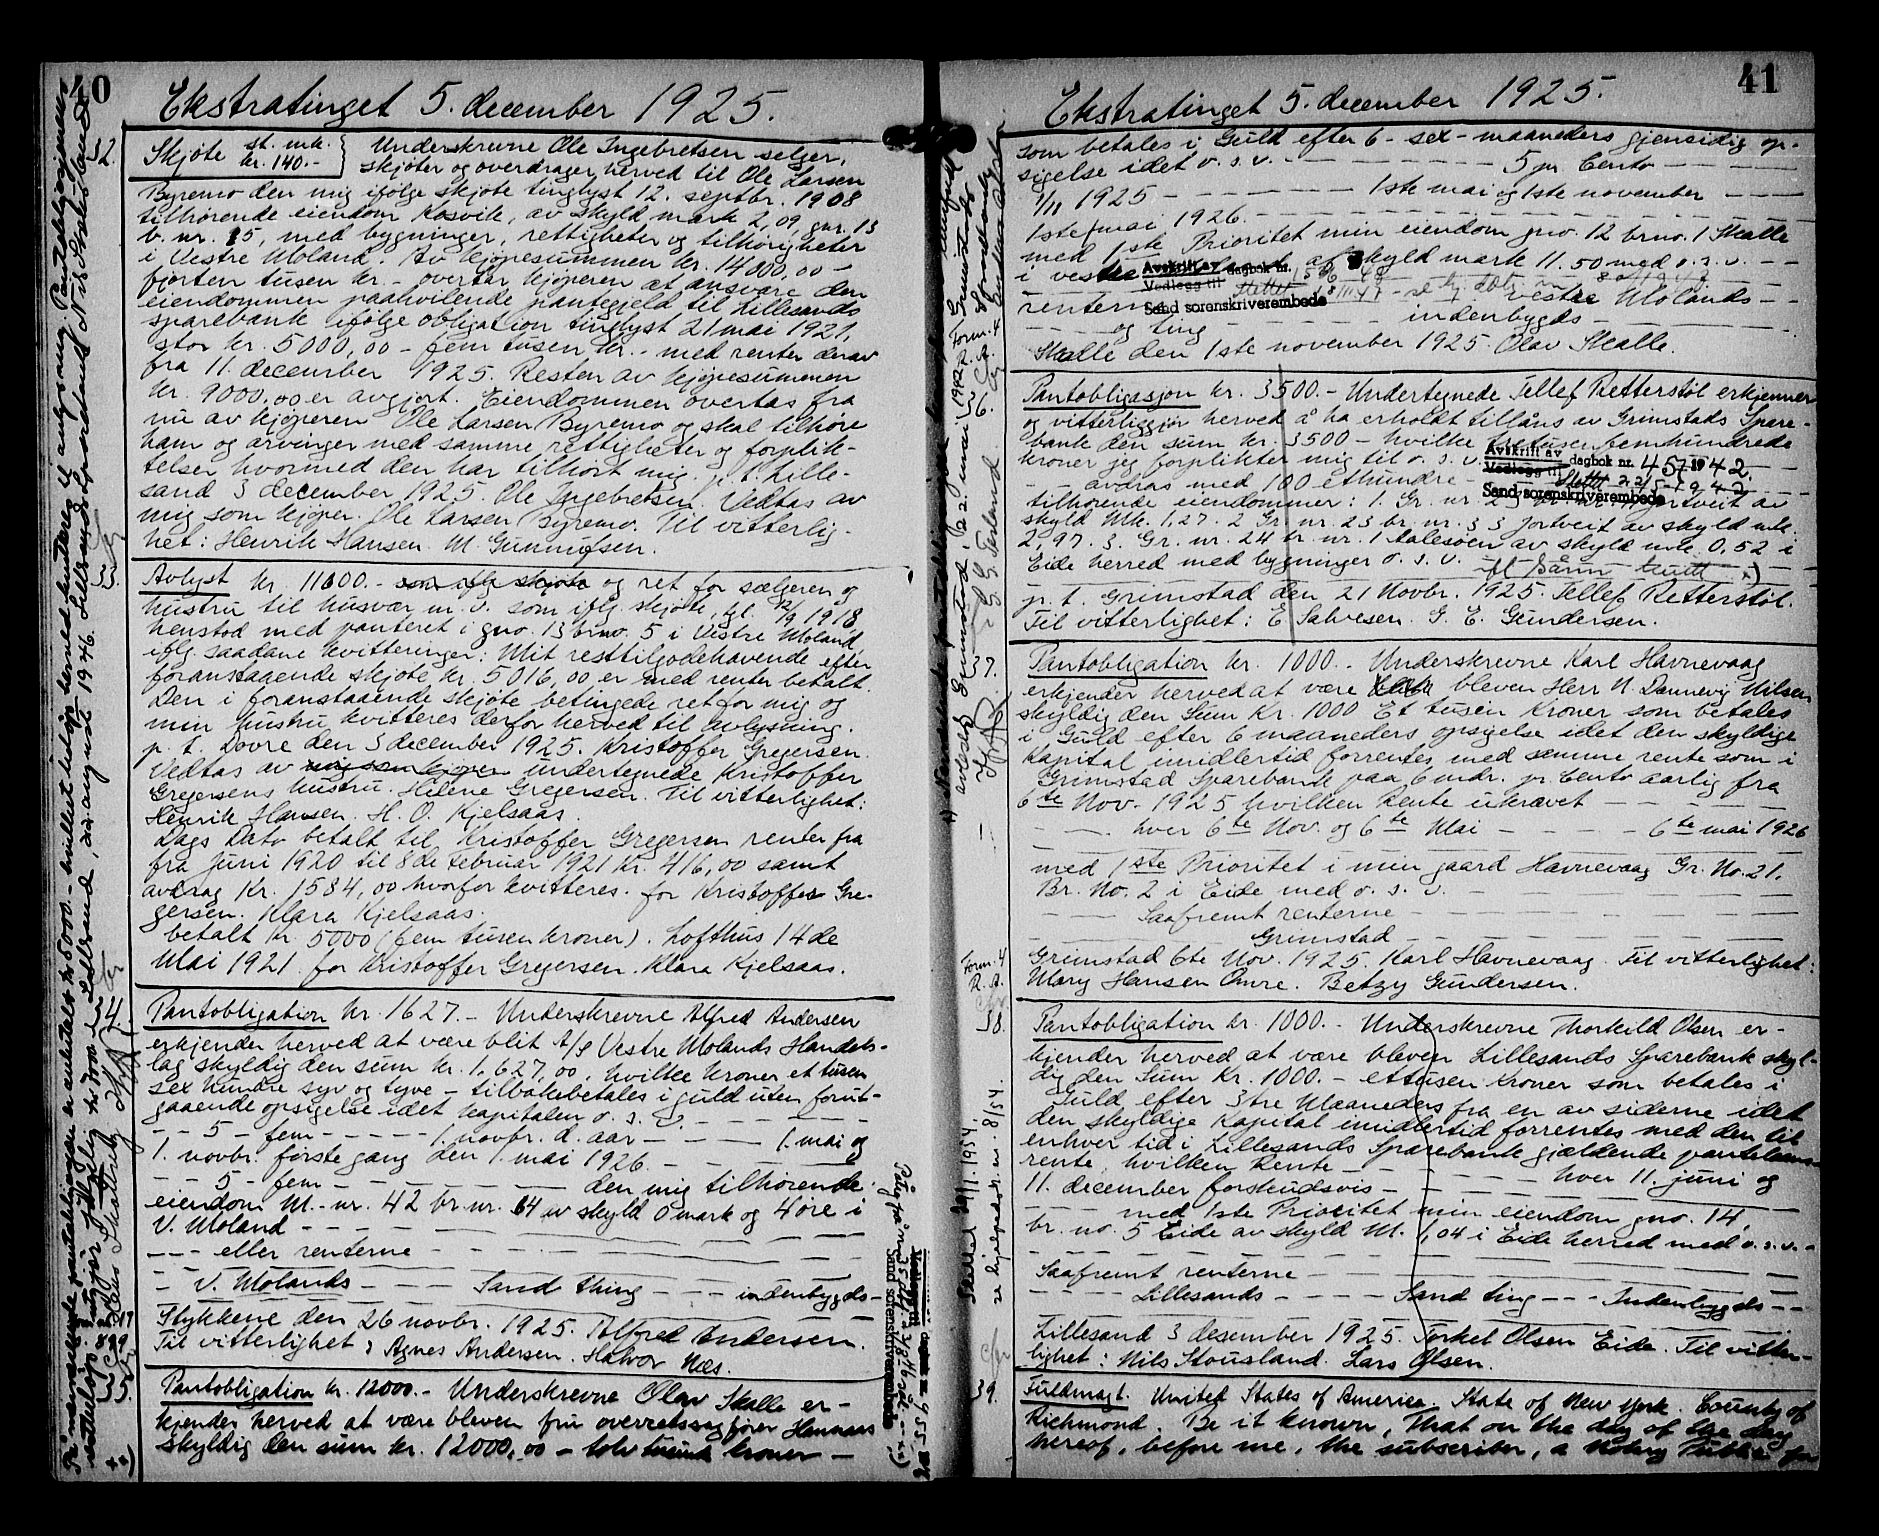 40
Ekstratinget 5. december 1925.
32.
Skjøte st. mk. kr. 140.-
Underskrevne Ole Ingebretsen selger,
skjøter og overdrager herved til Ole Larsen
Byremo den mig ifølge skjøte tinglyst 12. septbr. 1908
tilhørende eiendom Kosvik, av skyld mark 2,09, gnr. 13
b. nr. 15, med bygninger, rettigheter og tilhørigheter
i Vestre Moland. Av kjøpesummen kr. 14000,00 -
fjorten tusen kr. - overtar kjøperen at ansvare den
eiendommen paahvilende pantegjeld til Lillesands
sparebank ifølge obligation tinglyst 21 mai 1921,
stor kr. 5000,00 - fem tusen kr. - med renter derav
fra 11. december 1925. Resten av kjøpesummen
kr. 9000,00 er avgjort. Eiendommen overtas fra
nu av kjøperen Ole Larsen Byremo og skal tilhøre
ham og arvinger med samme rettigheter og forplik-
telser hvormed den har tilhørt mig. p. t. Lille
sand 3 december 1925. Ole Ingebretsen. Vedtas av
mig som kjøper. Ole Larsen Byremo. Til vitterlig-
het: Henrik Hansen. M. Gunnufsen.
33.
Avlyst kr. 11600.- som iflg skjøte og ret for sælgeren og
hustru til husvær m. v. som iflg. skjøte, tgl. 12/9 1918
henstod med panteret i gno. 13 brno. 5 i Vestre Moland,
iflg. saadane kvitteringer: Mit resttilgodehavende efter
foranstaaende skjøte kr. 5016,00 er med renter betalt
Den i foranstaaende skjøte betingede ret for mig og
min hustru kvitteres derfor herved til avlysning.
p. t. Dovre den 3 december 1925. Kristoffer Gregersen.
Vedtas av mig som kjøper undertegnede Kristoffer
Gregersens hustru. Helene Gregersen. Til vitterlighet:
Henrik Hansen. H. O. Kjelsaas.
Dags Dato betalt til Kristoffer Gregersen renter fra
fra Juni 1920 til 8de Februar 1921 kr. 416,00 samt
avdrag kr. 1584,00 hvorfor kvitteres. for Kristoffer Gre-
gersen. Klara Kjelsaas.
betalt kr. 5000 (fem tusen kroner). Lofthus 14de
Mai 1921. for Kristoffer Gregersen. Klara Kjelsaas.
34.
Pantobligation kr. 1627.- Underskrevne Alfred Andersen
erkjender herved at være blit A/S Vestre Molands Handels-
lag skyldig den sum kr. 1.627,00, hvilke kroner et tusen
sex hundre syv og tyve - tilbakebetales i guld uten forut-
gaaende opsigelse idet kapitalen o. s. v. - - -
- - 5 - fem - - - - - 1. novbr. d. aar - - - - 1. mai og
1. novbr. første gang den 1. mai 1926. - - - -
- - 5 - fem - - - - - - den mig tilhørende
eiendom M.-nr. 42 br. nr. 64 av skyld 0 mark og 4 øre i
V. Moland - - - -
- - - eller renterne - - - -
- V. Molands - - - - Sand thing - - - indenbygds -
Stykkene den 26 novbr. 1925. Alfred Andersen.
Til vitterlighet: Agnes Andersen. Halvor Næs.
35.
Pantobligation kr. 12000.- Underskrevne Olav Skalle er-
kjender herved at være bleven fru overretssagfører Hannaas
skyldig den sum kr. 12000,00 - tolv tusind kroner -
41
Ekstratinget 5. december 1925.
som betales i Guld efter 6 - sex - maaneders gjensidig op-
sigelse idet o. s. v. - - - - - 5 pr Cento - - -
1/11 1925 - - - - - 1ste mai og 1ste november - - -
1ste mai 1926. - - - - -
med 1ste Prioritet min eiendom gno. 12 brno. 1 Skalle
i vestre Moland af skyld mark 11.50 med o. s. v. - - -
Avskrift av dagbok nr.
Vedlegg til
Sand sorenskriverembede
renterne - - - vestre Molands - -
- - - og ting - - - - indenbygds - - - -
Skalle den 1ste november 1925. Olav Skalle.
Form. 4
R. A.
36.
Pantobligasjon kr. 3500.- Undertegnede Tellef Retterstøl erkjenner
og vitterliggjør herved å ha erholdt tillåns av Grimstads Spare-
bank den sum kr. 3500 - hvilke tretusen femhundrede
kroner jeg forplikter mig til o. s. v.
Avskrift av dagbok nr. 457 1942
Vedlegg til
Sand sorenskriverembede
- - avdras med 100 ethundre -
tilhørende eiendommer: 1. Gr. nr.
skyld Mk. 1,27. 2 Gr. nr. 23 br. nr. 33 Jortveit av skyld mk.
2,97. 3. Gr. nr. 24 br. nr. 1 Aalesøen av skyld mk. 0,52 i
Eide herred med bygninger o. s. v.
p. t. Grimstad den 21 Novbr. 1925. Tellef Retterstøl.
Til vitterlighet: E. Salvesen. G. E. Gundersen.
37.
Pantobligation kr. 1000.- Underskrevne Karl Havnevaag
erkjender herved at være bleven Herr N. Dannevig Nilsen
skyldig den Sum Kr. 1000 Et tusen Kroner som betales
i Guld efter 6 maaneders opsigelse idet den skyldige
Kapital imidlertid forrentes med samme rente som i
Grimstad Sparebank paa 6 mdr. pr. Cento aarlig fra
6te Nov. 1925 hvilken Rente ukrævet - - - -
- - - hver 6te Nov. og 6te Mai - - - - 6te mai 1926
med 1ste Prioritet i min gaard Havnevaag Gr. No. 21.
Br. No. 2 i Eide med o. s. v. -
- - - Saafremt renterne - - - -
- - - Grimstad - - - -
Grimstad 6te Nov. 1925. Karl Havnevaag. Til vitterlighet:
Mary Hansen Omre. Betzy Gundersen.
Form. 4
R. A.
38.
Pantobligation kr. 1000.- Underskrevne Thorkild Olsen er-
kjender herved at være bleven Lillesands Sparebank skyl-
dig den Sum Kr. 1000.- ettusen Kroner som betales i
Guld efter 3tre Maaneders fra en av siderne idet
den skyldige Kapital imidlertid forrentes med den til
enhver tid i Lillesands Sparebank gjældende pantelaans-
rente, hvilken Rente - - - - hver 11. juni og
11. december forskudsvis - - - -
- - - med 1ste Prioritet min eiendom gno. 14,
br. no. 5 Eide av skyld M. 1,04 i Eide herred med o. s. v. -
Saafremt renterne - - - -
- - - Lillesands - - - - Sand ting - - - Indenbygds - -
Lillesand 3 desember 1925. Torkel Olsen Eide. Til vitter-
lighet: Nils Stousland. Lars Olsen.
39.
Fuldmagt. United States of America, State of New York. County of
Richmond. Be it known, That on the day of the day
hereof, before me, the subscriber, a Notary Public for